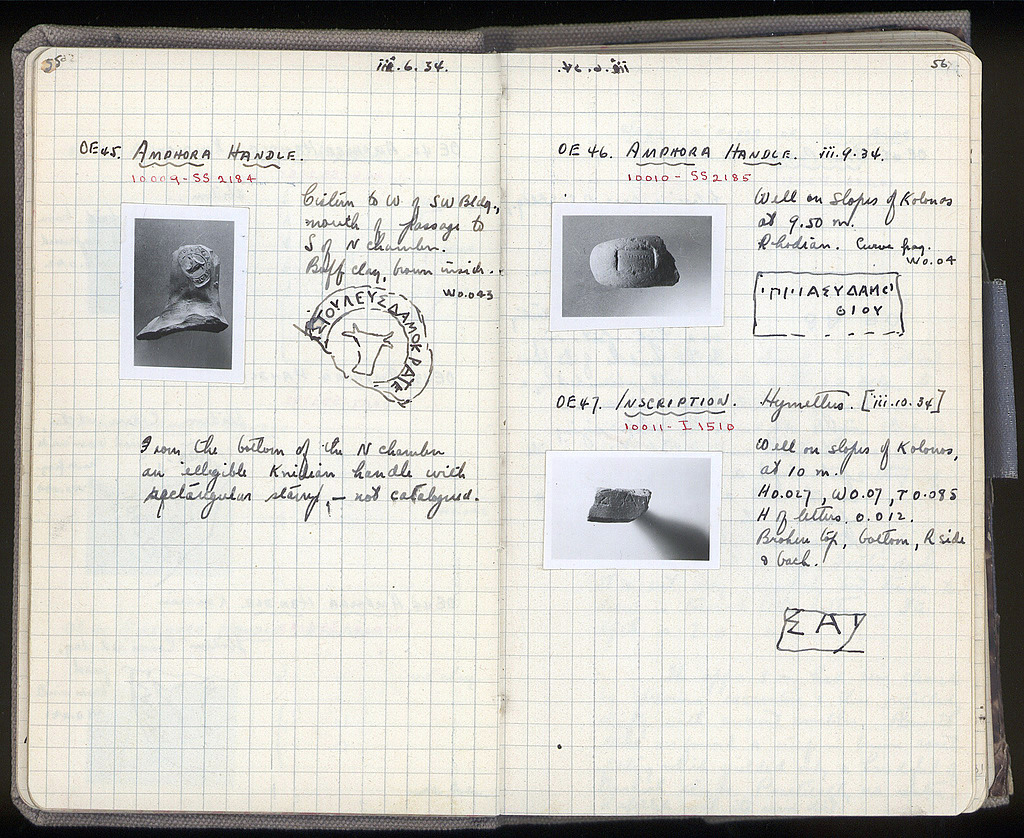 55
iii.6.34.
OE45. AMPHORA HANDLE.
10009-SS 2184
Cistern to W of SW Bldg,
mouth of passage to
S of N chamber.
Buff clay, brown inside.
W0.043
ΣΤΟΥΛΕΥΣΔΑΜΟΚΡΑΤΕ
From the bottom of the N chamber
an illegible Knidian handle with
rectangular stamp, — not catalogued.
56
OE 46. AMPHORA HANDLE. iii.9.34.
10010-SS2185
Well on slopes of Kolonos
at 9.50 m.
Rhodian. Curve frag.
W0.04
ΑΣΥΔΑΜΟ
ΘΙΟΥ
OE47. INSCRIPTION. Hymettus. [iii.10.34]
10011-I 1510
Well on slopes of Kolonos,
at 10 m.
H0.027, W0.07, T0.085
H of letters. 0.012.
Broken top, bottom, R side
& back.
ΣΑ